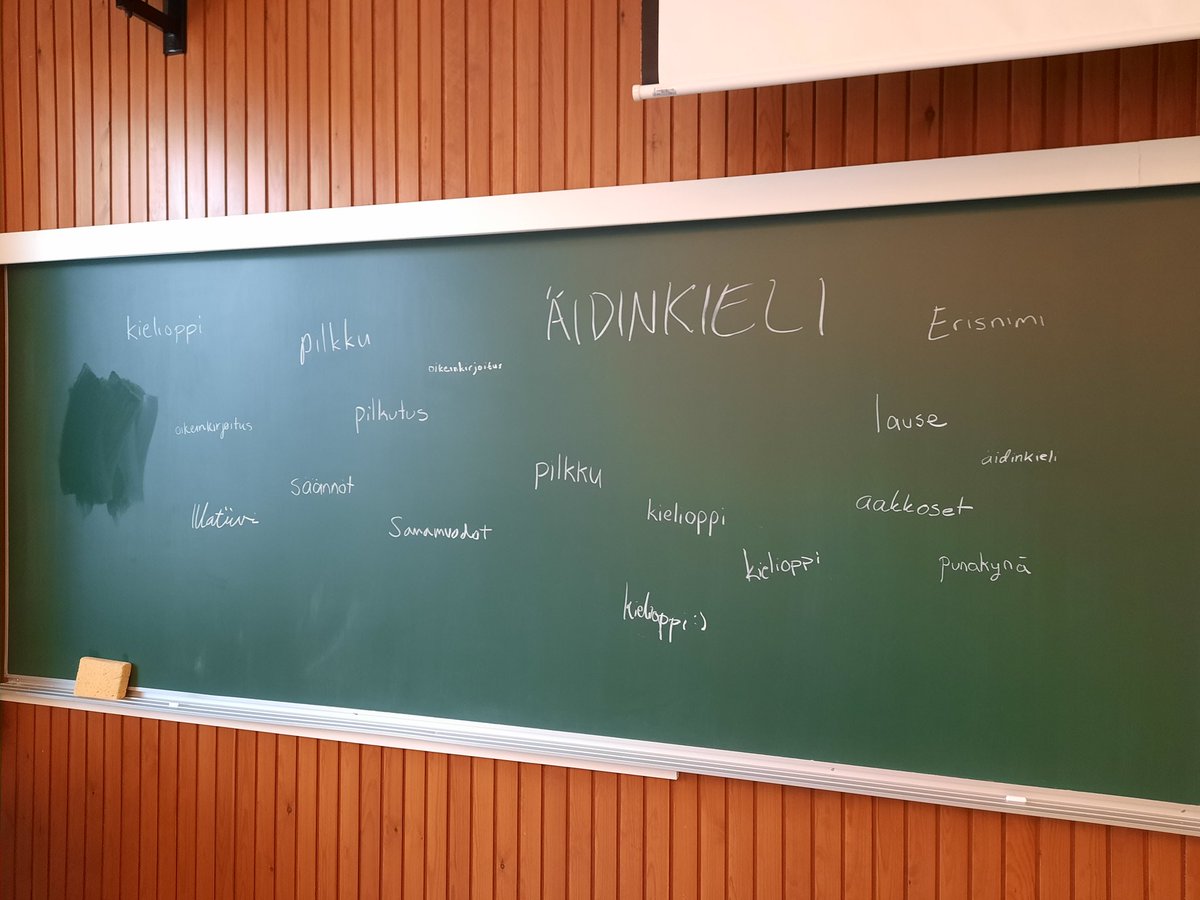 ÄIDINKIELI
kielioppi
pilkku
Erisnimi
oikeinkirjoitus
oikeinkirjoitus
pilkutus
lause
äidinkieli
säännöt
pilkku
aakkoset
Illatiivi
Sanamuodot
kielioppi
kielioppi
punakynä
kielioppi :)